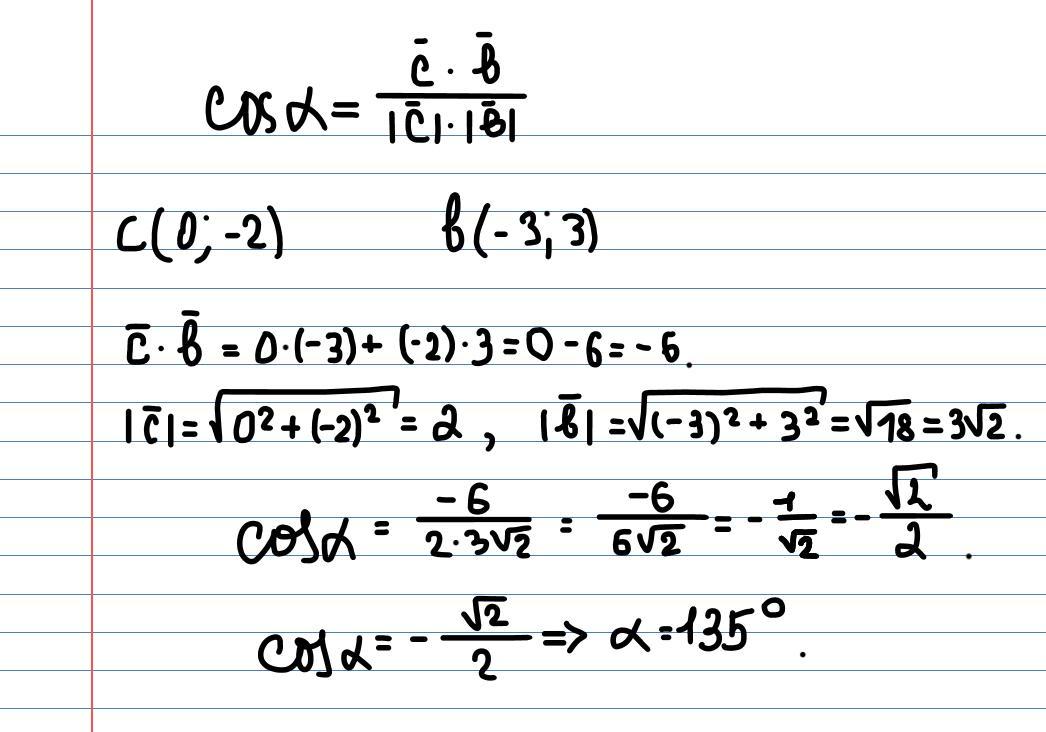 cos α = (c̄ · b̄) / (|c̄| · |b̄|)
c(0; -2) b(-3; 3)
c̄ · b̄ = 0·(-3) + (-2)·3 = 0 - 6 = -6.
|c̄| = √(0² + (-2)²) = 2, |b̄| = √((-3)² + 3²) = √18 = 3√2.
cos α = -6 / (2·3√2) = -6 / (6√2) = - 1/√2 = - √2/2.
cos α = - √2/2 => α = 135°.